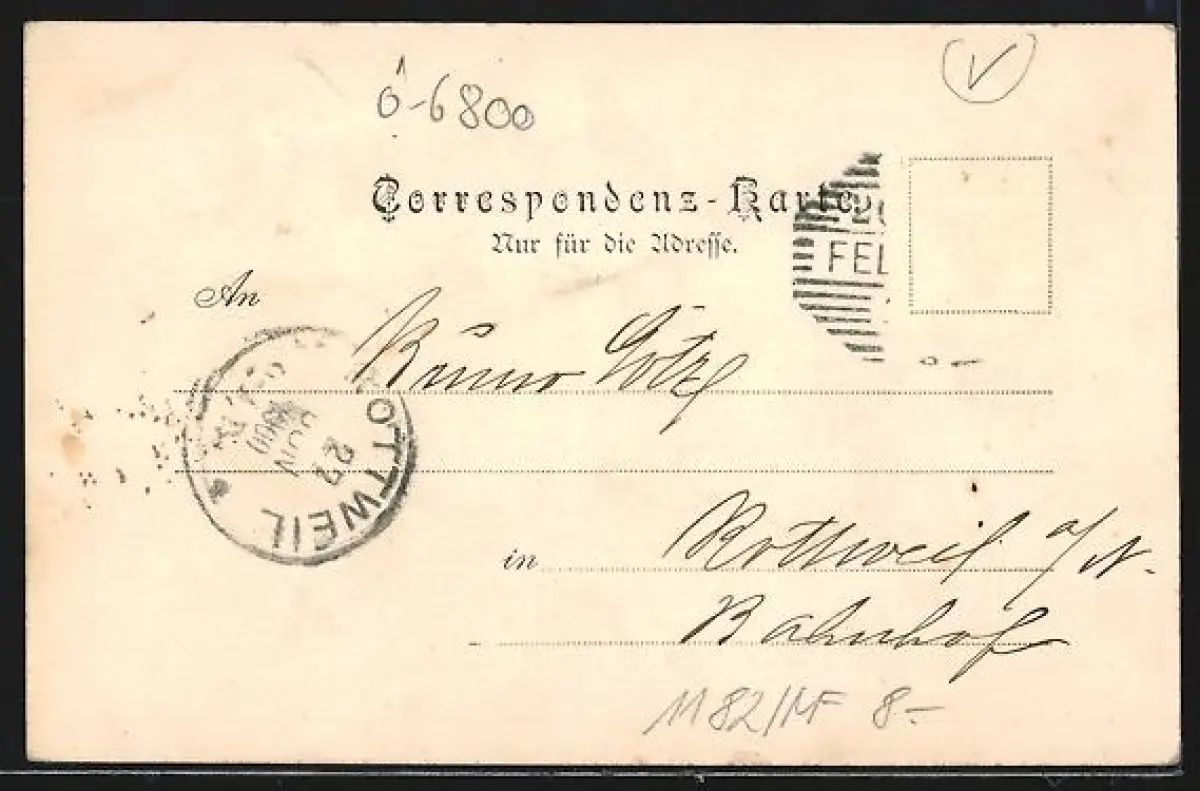 Ö-6800
V
Correspondenz-Karte
Nur für die Adresse.
FEL
An
Bruno Götz
ROTTWEIL
27
in
Rottweil a/N.
Bahnhof
1182/MF 8.-